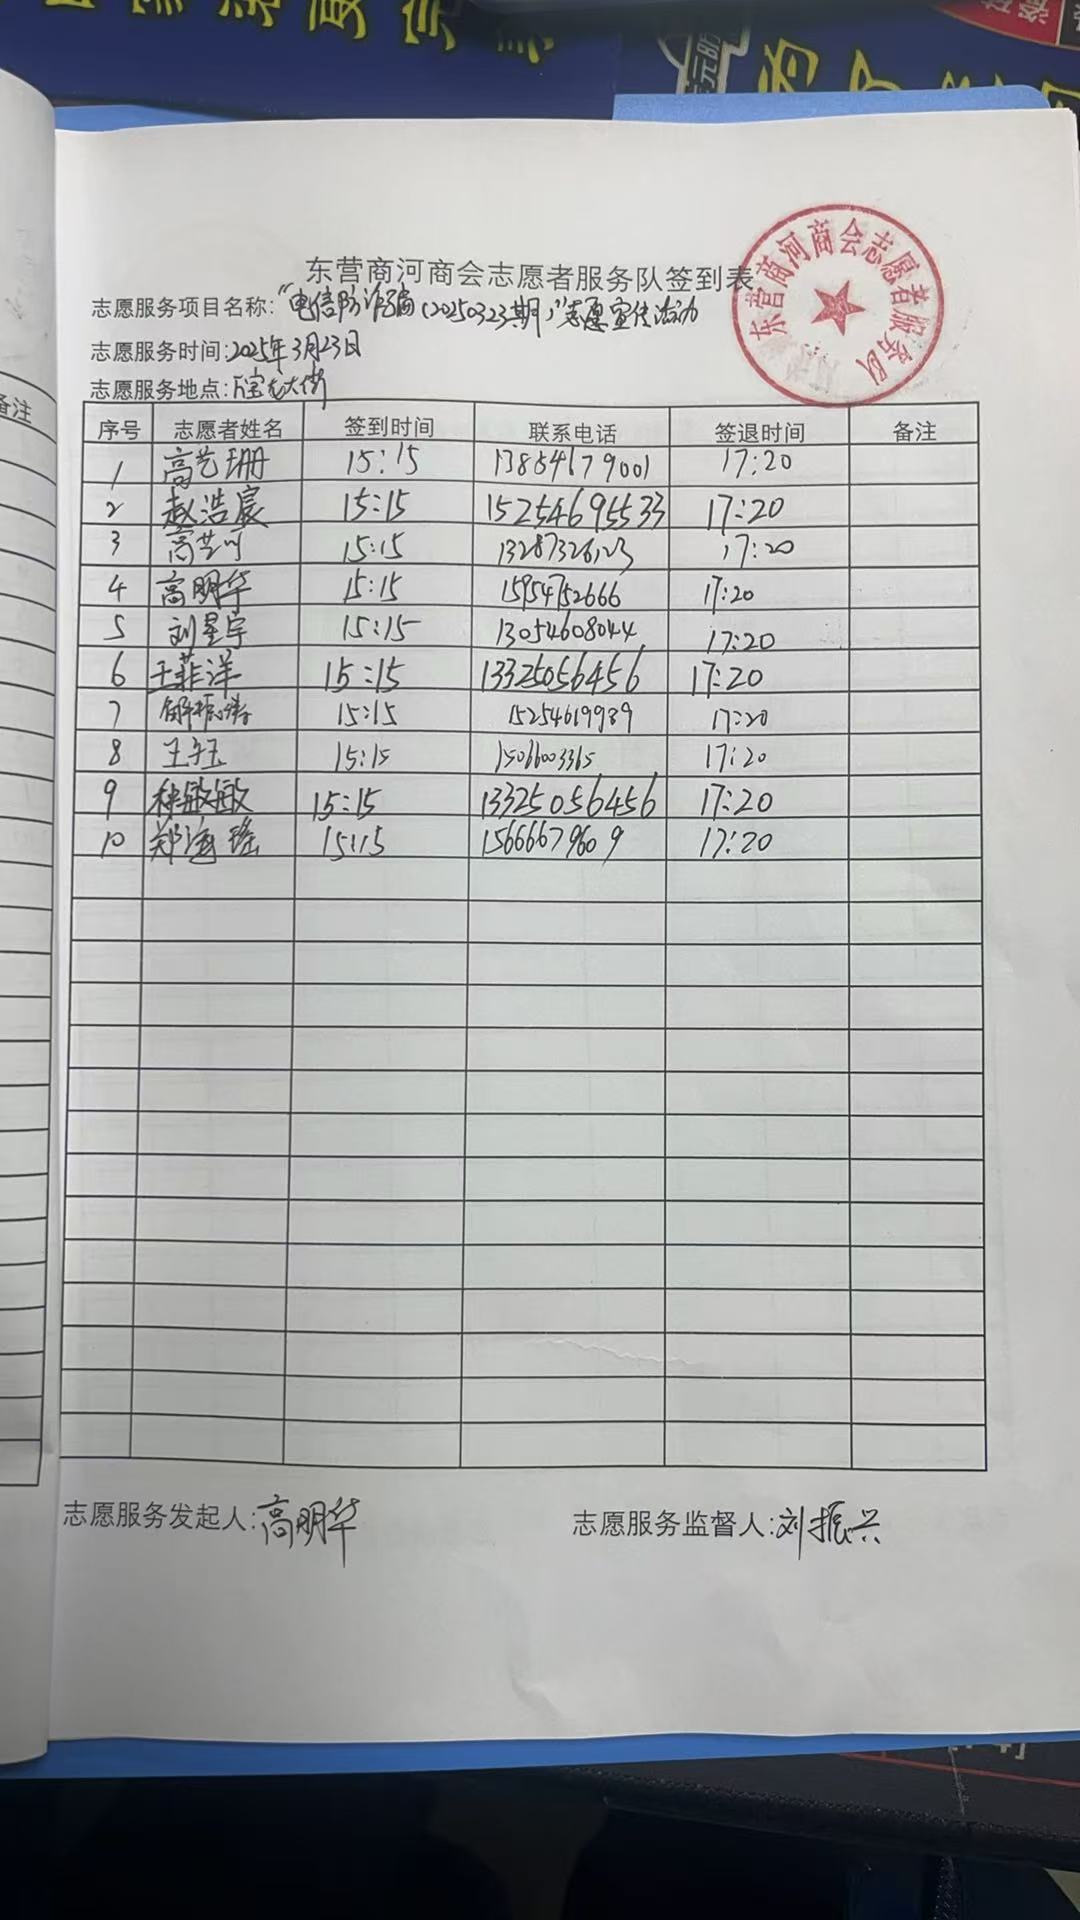 东营商河商会志愿者服务队签到表
东营商河商会志愿者服务队
志愿服务项目名称:“电信防诈骗(20250323期)”志愿宣传活动
志愿服务时间:2025年3月23日
志愿服务地点:万宝龙大街
序号 志愿者姓名 签到时间 联系电话 签退时间 备注
1 高艺珊 15:15 13854679001 17:20
2 赵浩宸 15:15 15254695533 17:20
3 高艺可 15:15 13287326123 17:20
4 高明华 15:15 15954752666 17:20
5 刘星宇 15:15 13054608044 17:20
6 王菲洋 15:15 13325056456 17:20
7 15:15 15254619989 17:20
8 王子玉 15:15 15066003365 17:20
9 林敏敏 15:15 13325056456 17:20
10 郑海瑶 15:15 15666679609 17:20
志愿服务发起人:高明华 志愿服务监督人:刘振兴
备注